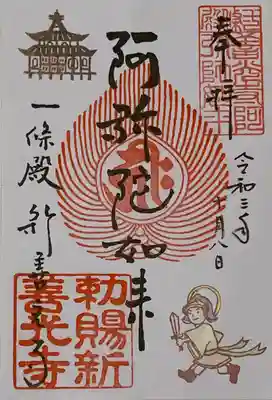 奉拝
令和三年十一月八日
阿弥陀如来
一條殿 新善光寺
勅賜新
善光寺